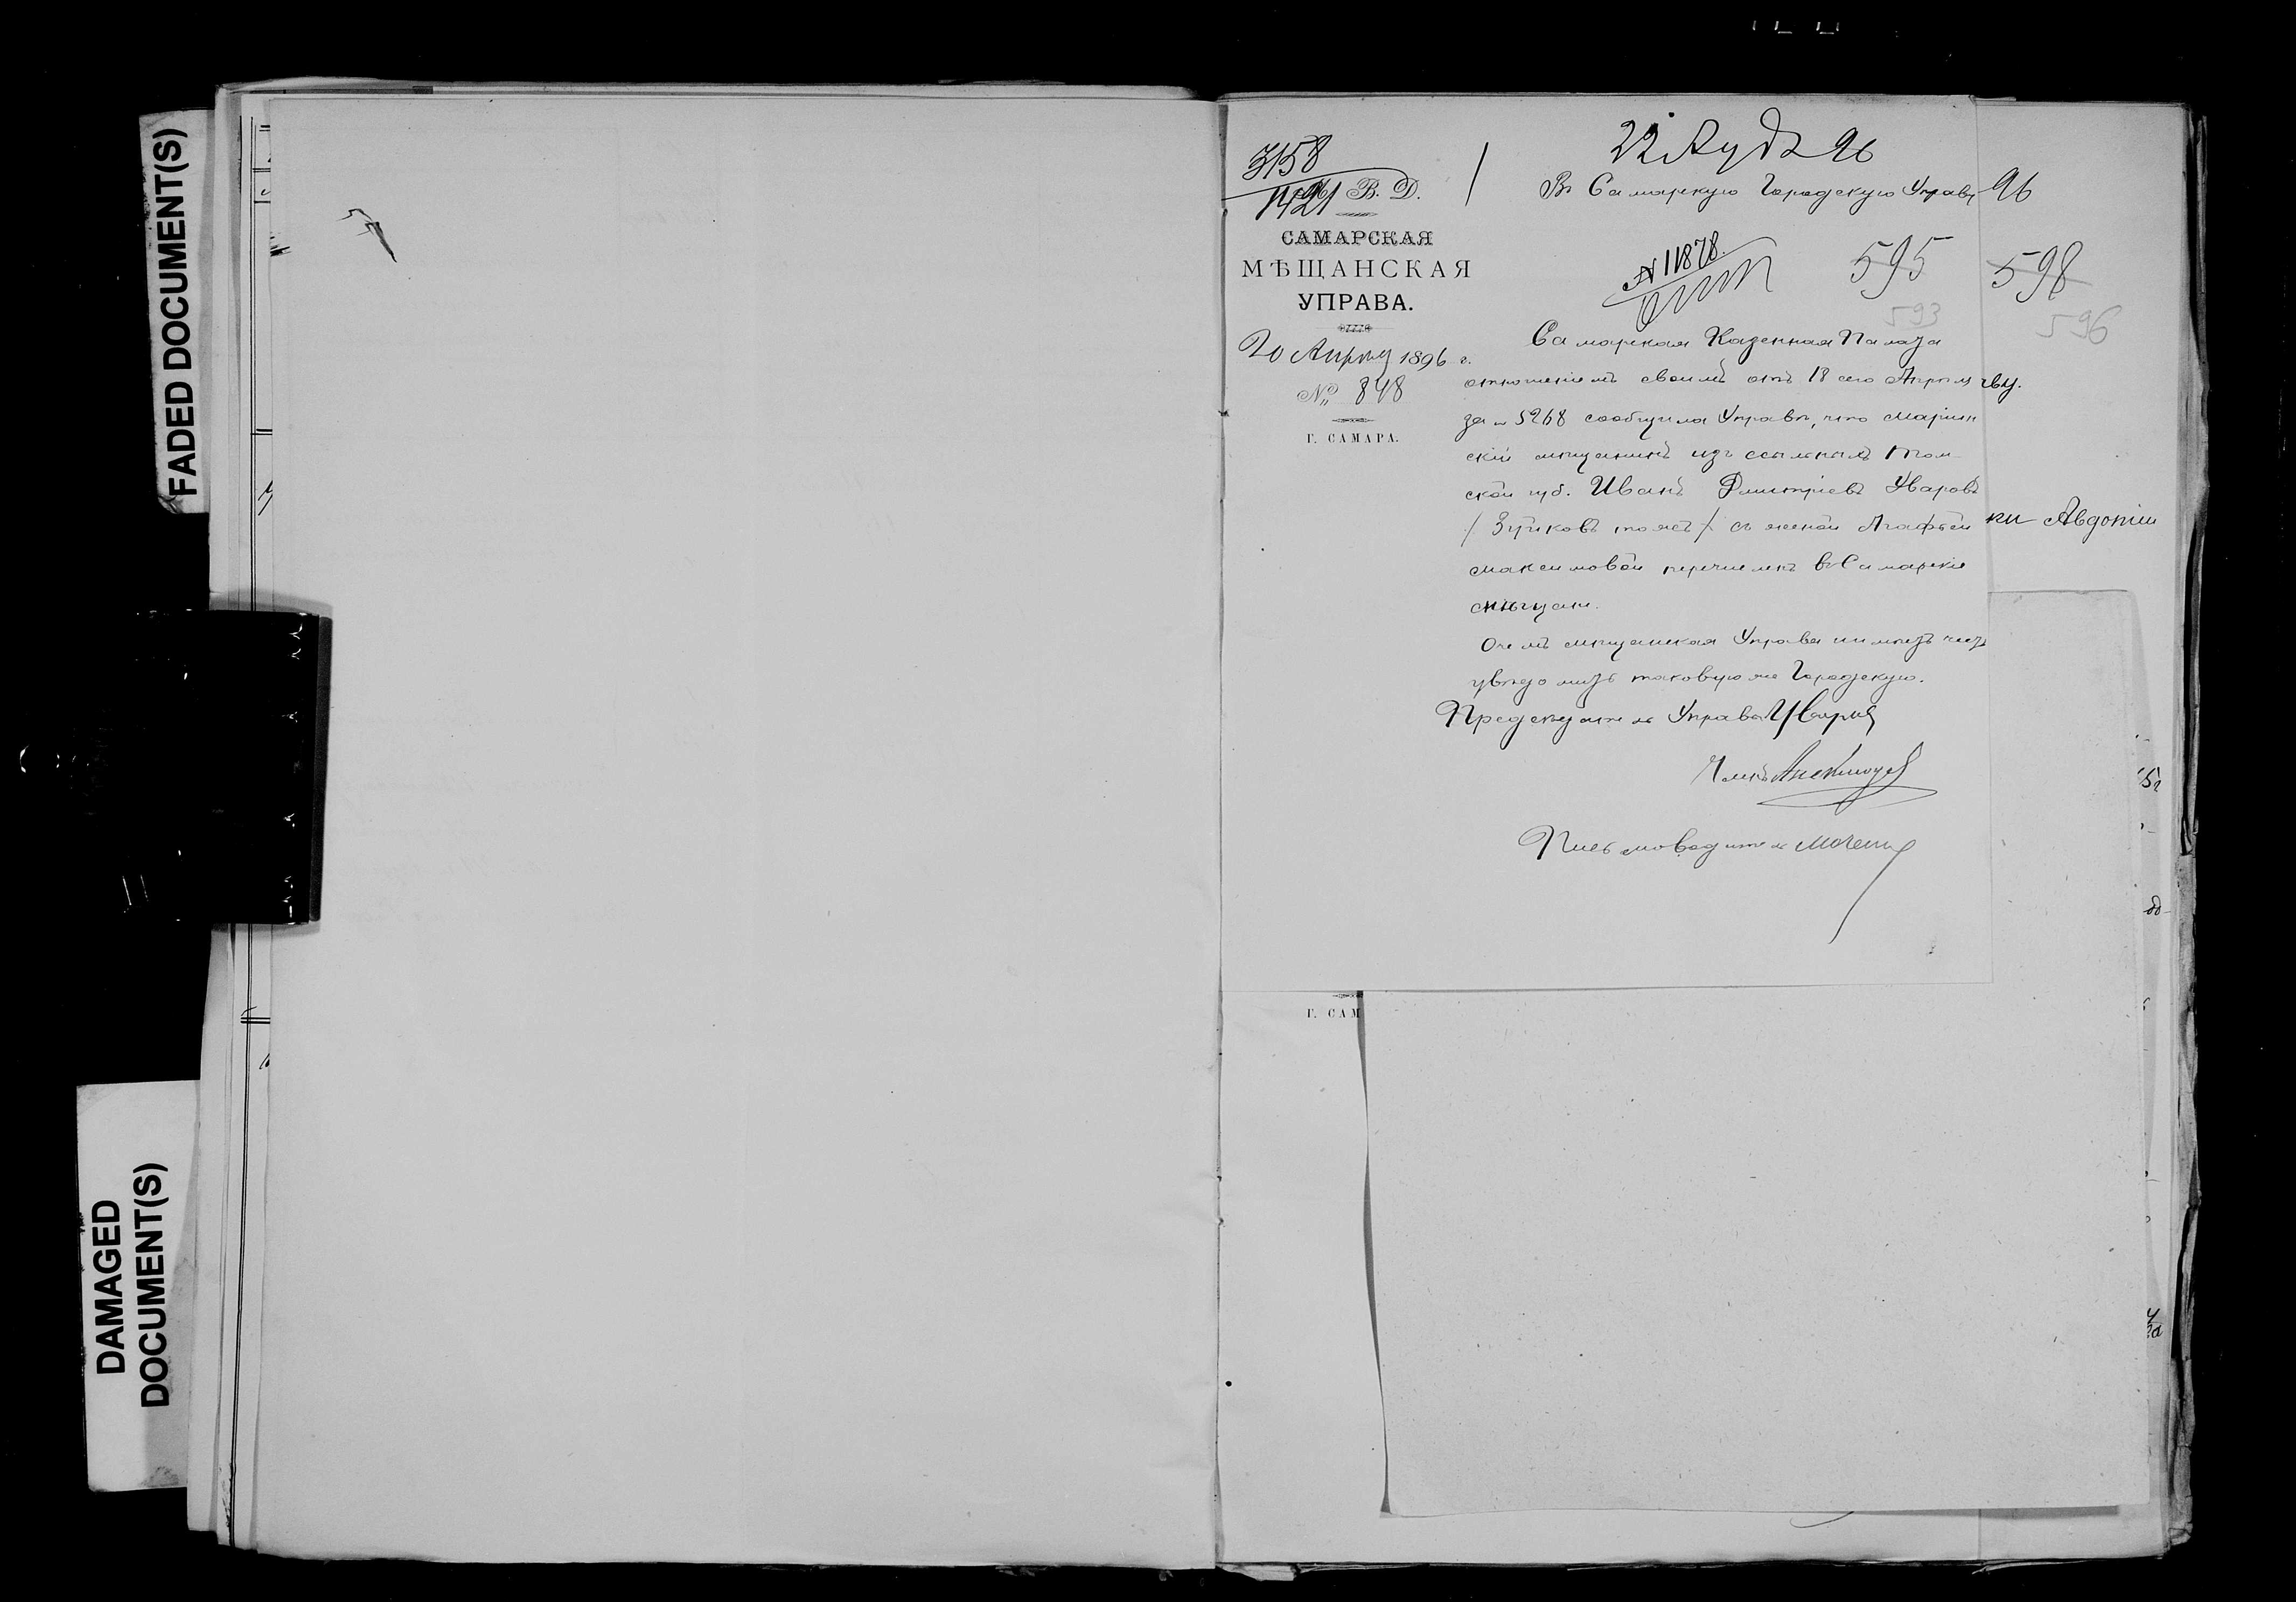 FADED DOCUMENT(S)
DAMAGED
DOCUMENT(S)
3158
1421 В. Д.
САМАРСКАЯ
МѢЩАНСКАЯ
УПРАВА.
20 Апрѣля 1896 г.
№ 848
Г. САМАРА.
22 96
Въ Самарскую Городскую Управу
№ 11878
595
593
Самарская Казенная Палата
отношеніемъ своимъ отъ 18 сего Апрѣля
за № 5268 сообщила Управѣ, что Маріин
скій мѣщанинъ изъ ссыльныхъ Том
ской губ. Иванъ Дмитріевъ Уваровъ
/ Зуйковъ тожъ / съ женой Агафьей
Максимовой перечисленъ въ Самарскіе
мѣщане.
О чемъ мѣщанская Управа имѣетъ честь
увѣдомить таковую же Городскую.
Предсѣдатель Управы
Членъ
Письмоводитель
96
598
596
ки Авдотіи
Г. САМ